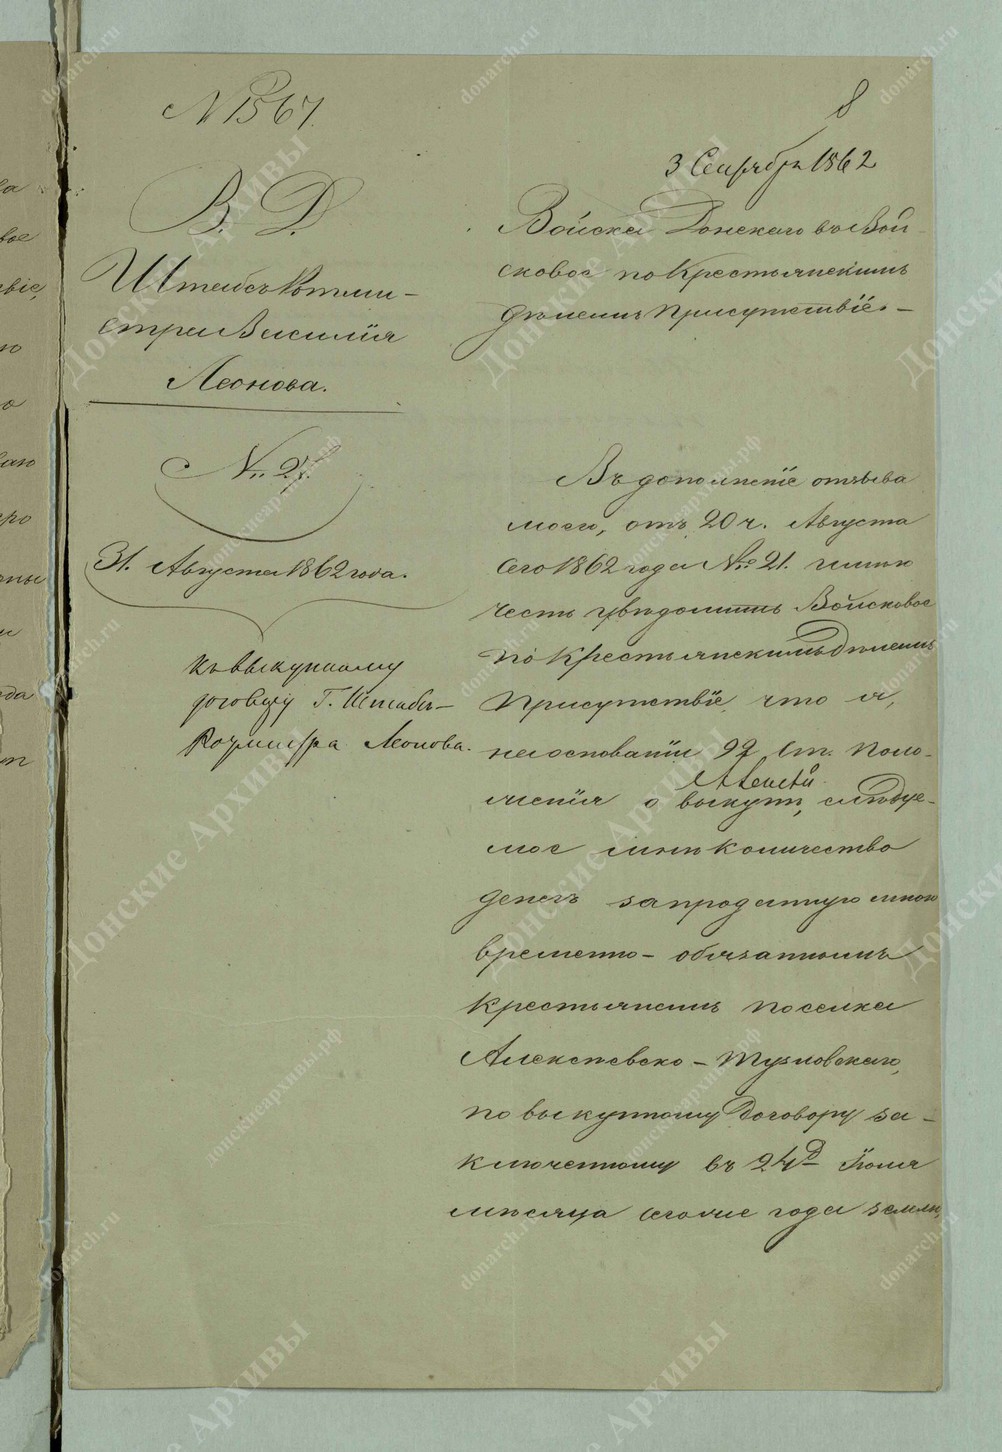 № 1567.
8
3 Сентября 1862
В. Д.
Штабсъ Ротми-
стра Василія
Леонова.
№ 27.
31. Августа 1862 года.
къ выкупному
договору Г. Штабъ-
Ротмистра Леонова.
Войска Донскаго въ Вой-
сковое по Крестьянскимъ
дѣламъ Присутствіе. –
Въ дополненіе отзыва
моего, отъ 20 ч. Августа
сего 1862 года № 21. имѣю
честь увѣдомить Войсковое
по Крестьянскимъ Дѣламъ
Присутствіе, что я,
на основаніи 92 ст. Поло-
женія о выкупѣ, слѣдуе-
мое мнѣ количество
денегъ за проданную мною
временно-обязаннымъ
крестьянамъ поселка
Алексѣевско-Тузловскаго,
по выкупному Договору за-
ключенному въ 24д Іюля
мѣсяца сего же года землю,